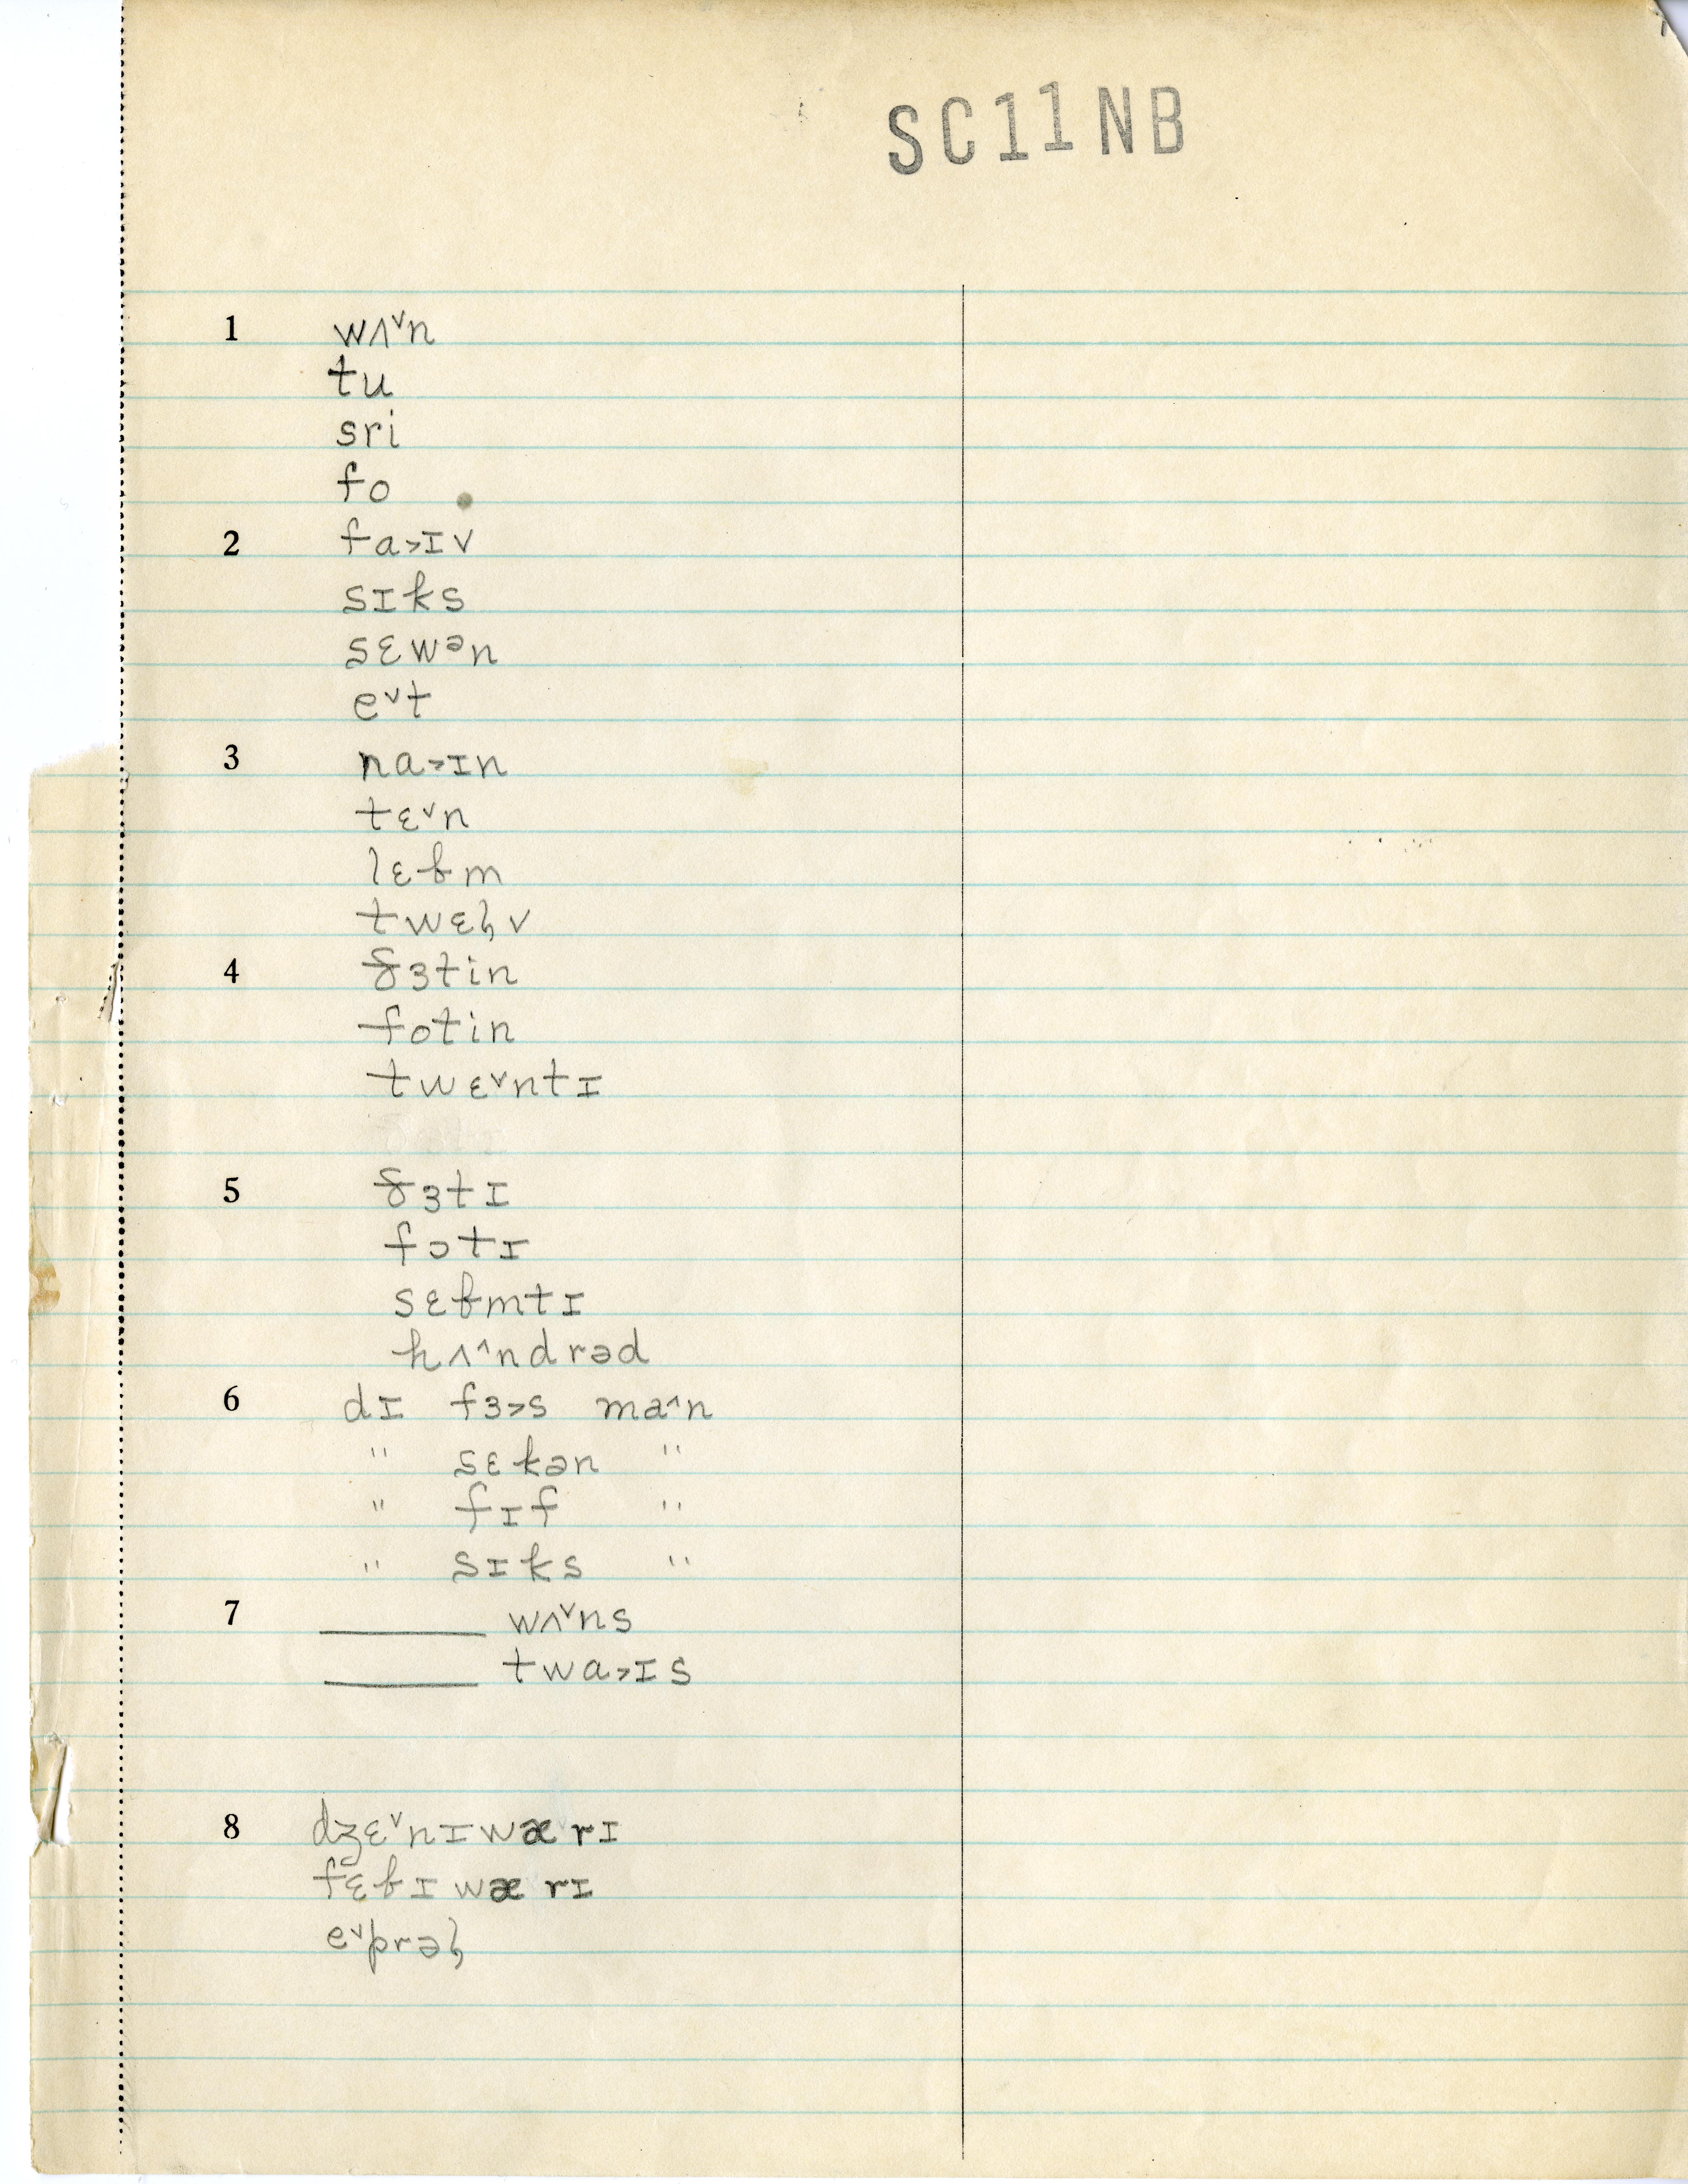 SC11NB
1 wʌ˅n
tu
sri
fo
2 fa˃ɪv
sɪks
sɛwən
e˅t
3 na˃ɪn
tɛ˅n
lɛbm
twɛɫv
4 ɜtin
fotin
twɛ˅ntɪ
5 ɜtɪ
fɔtɪ
sɛbmtɪ
hʌ˄ndrəd
6 dɪ fɜ˃s ma˄n
" sɛkən "
" fɪf "
" sɪks "
7 ______ wʌ˅ns
______ twa˃ɪs
8 dʒɛ˅nɪwærɪ
fɛbɪwærɪ
e˅prəɫ